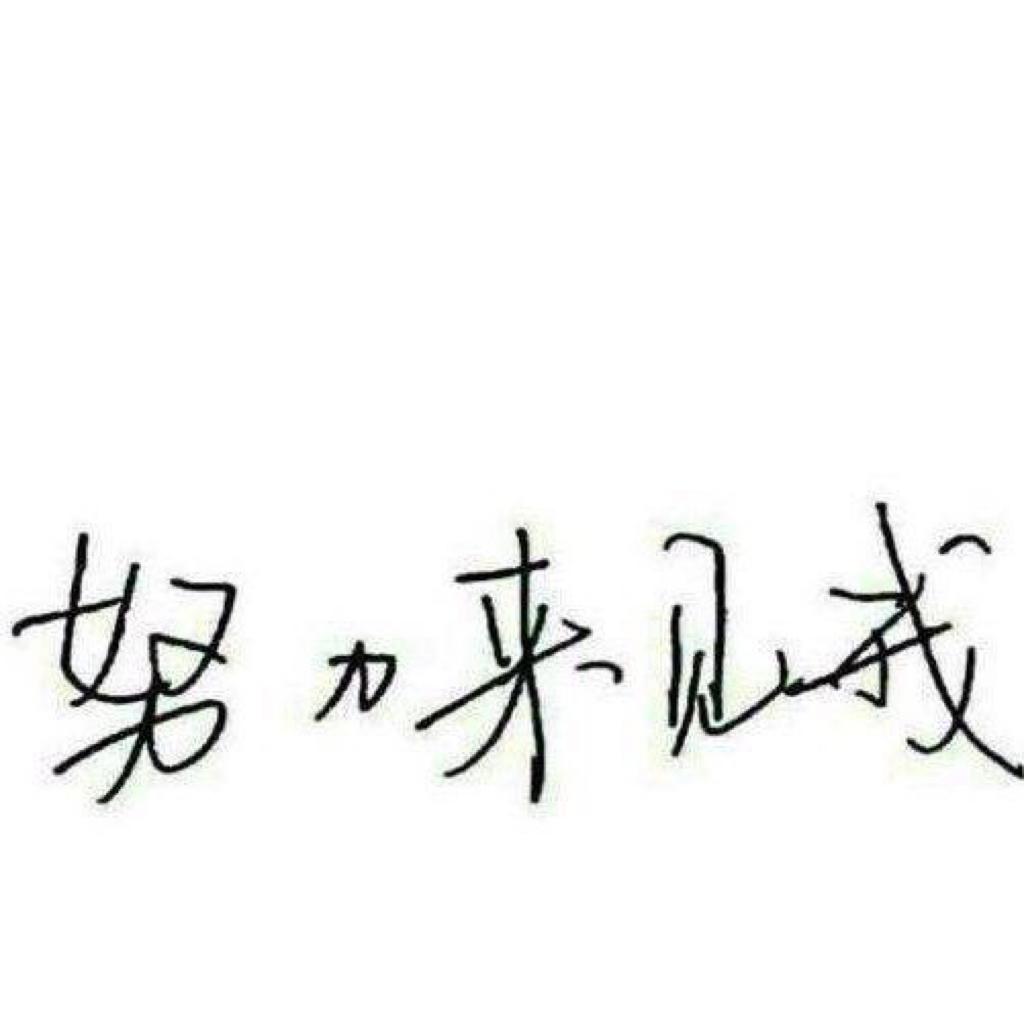 努力来见我